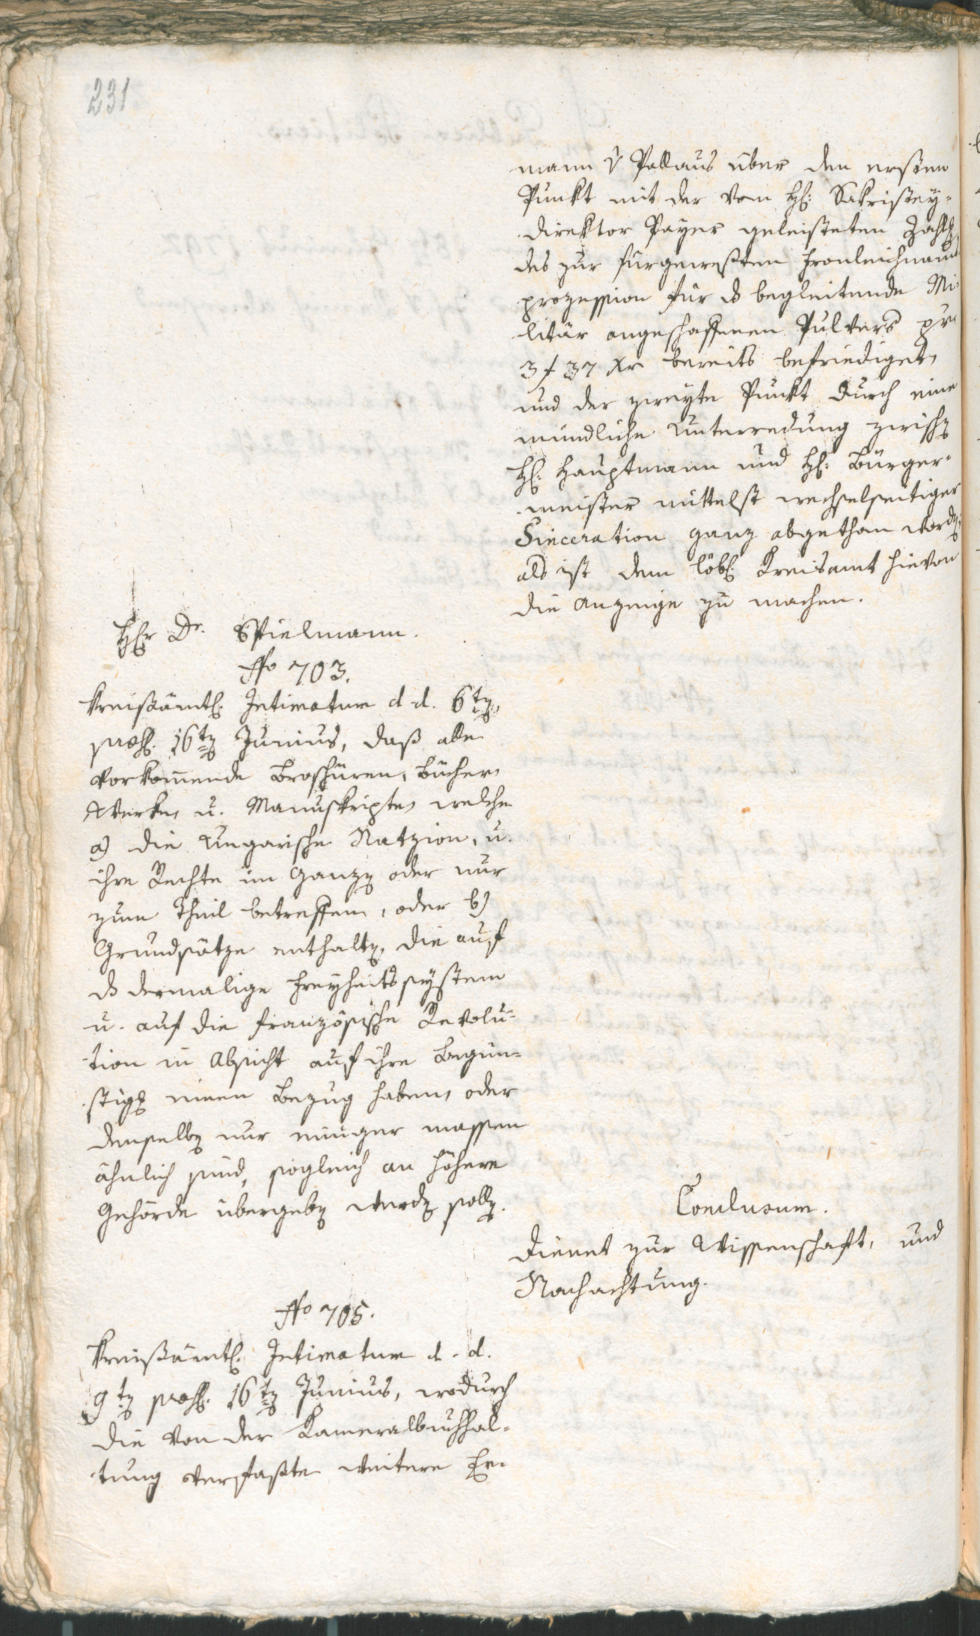 231
mann v Pallaus über den ersten
Punkt mit der vom H: Sakristey-
direktor Payer geleisteten Zahlg
des zur fürgewesten Fronleichnams
prozession für ds begleitende Mi-
litär angeschaffenen Pulvers pr
3 f 37 Xr bereits befriediget,
und der zweyte Punkt durch eine
mündliche Unterredung zwischn
H: Hauptmann und H: Bürger-
meister mittelst wechselseitiger
Sinceration ganz abgethan wordn,
als ist dem löbl Kreisamt hievon
die Anzeige zu machen.
Hr Dr. Spielmann.
No 703.
Kreisämtl. Intimatum d. d. 6tn,
praes. 16tn Junius, daß alle
vorkommende Broschüren, Bücher,
Werke, u. Manuskripte, welche
a) die Ungarische Natzion, u.
ihre Rechte im Ganzn oder nur
zum Theil betreffen, oder b)
Grundsätze enthaltn, die auf
ds dermalige Freyheitssystem
u. auf die französische Revolu-
tion in Absicht auf ihre Begün-
stigg einen Bezug haben, oder
denselbn nur einiger massen
ähnlich sind, sogleich an höhere
Gehörde übergebn werdn solln.
Conclusum.
Dienet zur Wissenschaft, und
Nachachtung.
No 705.
Kreisämtl. Intimatum d. d.
9tn praes. 16tn Junius, wodurch
die von der Kameralbuchhal-
tung verfaßte weitere Er-